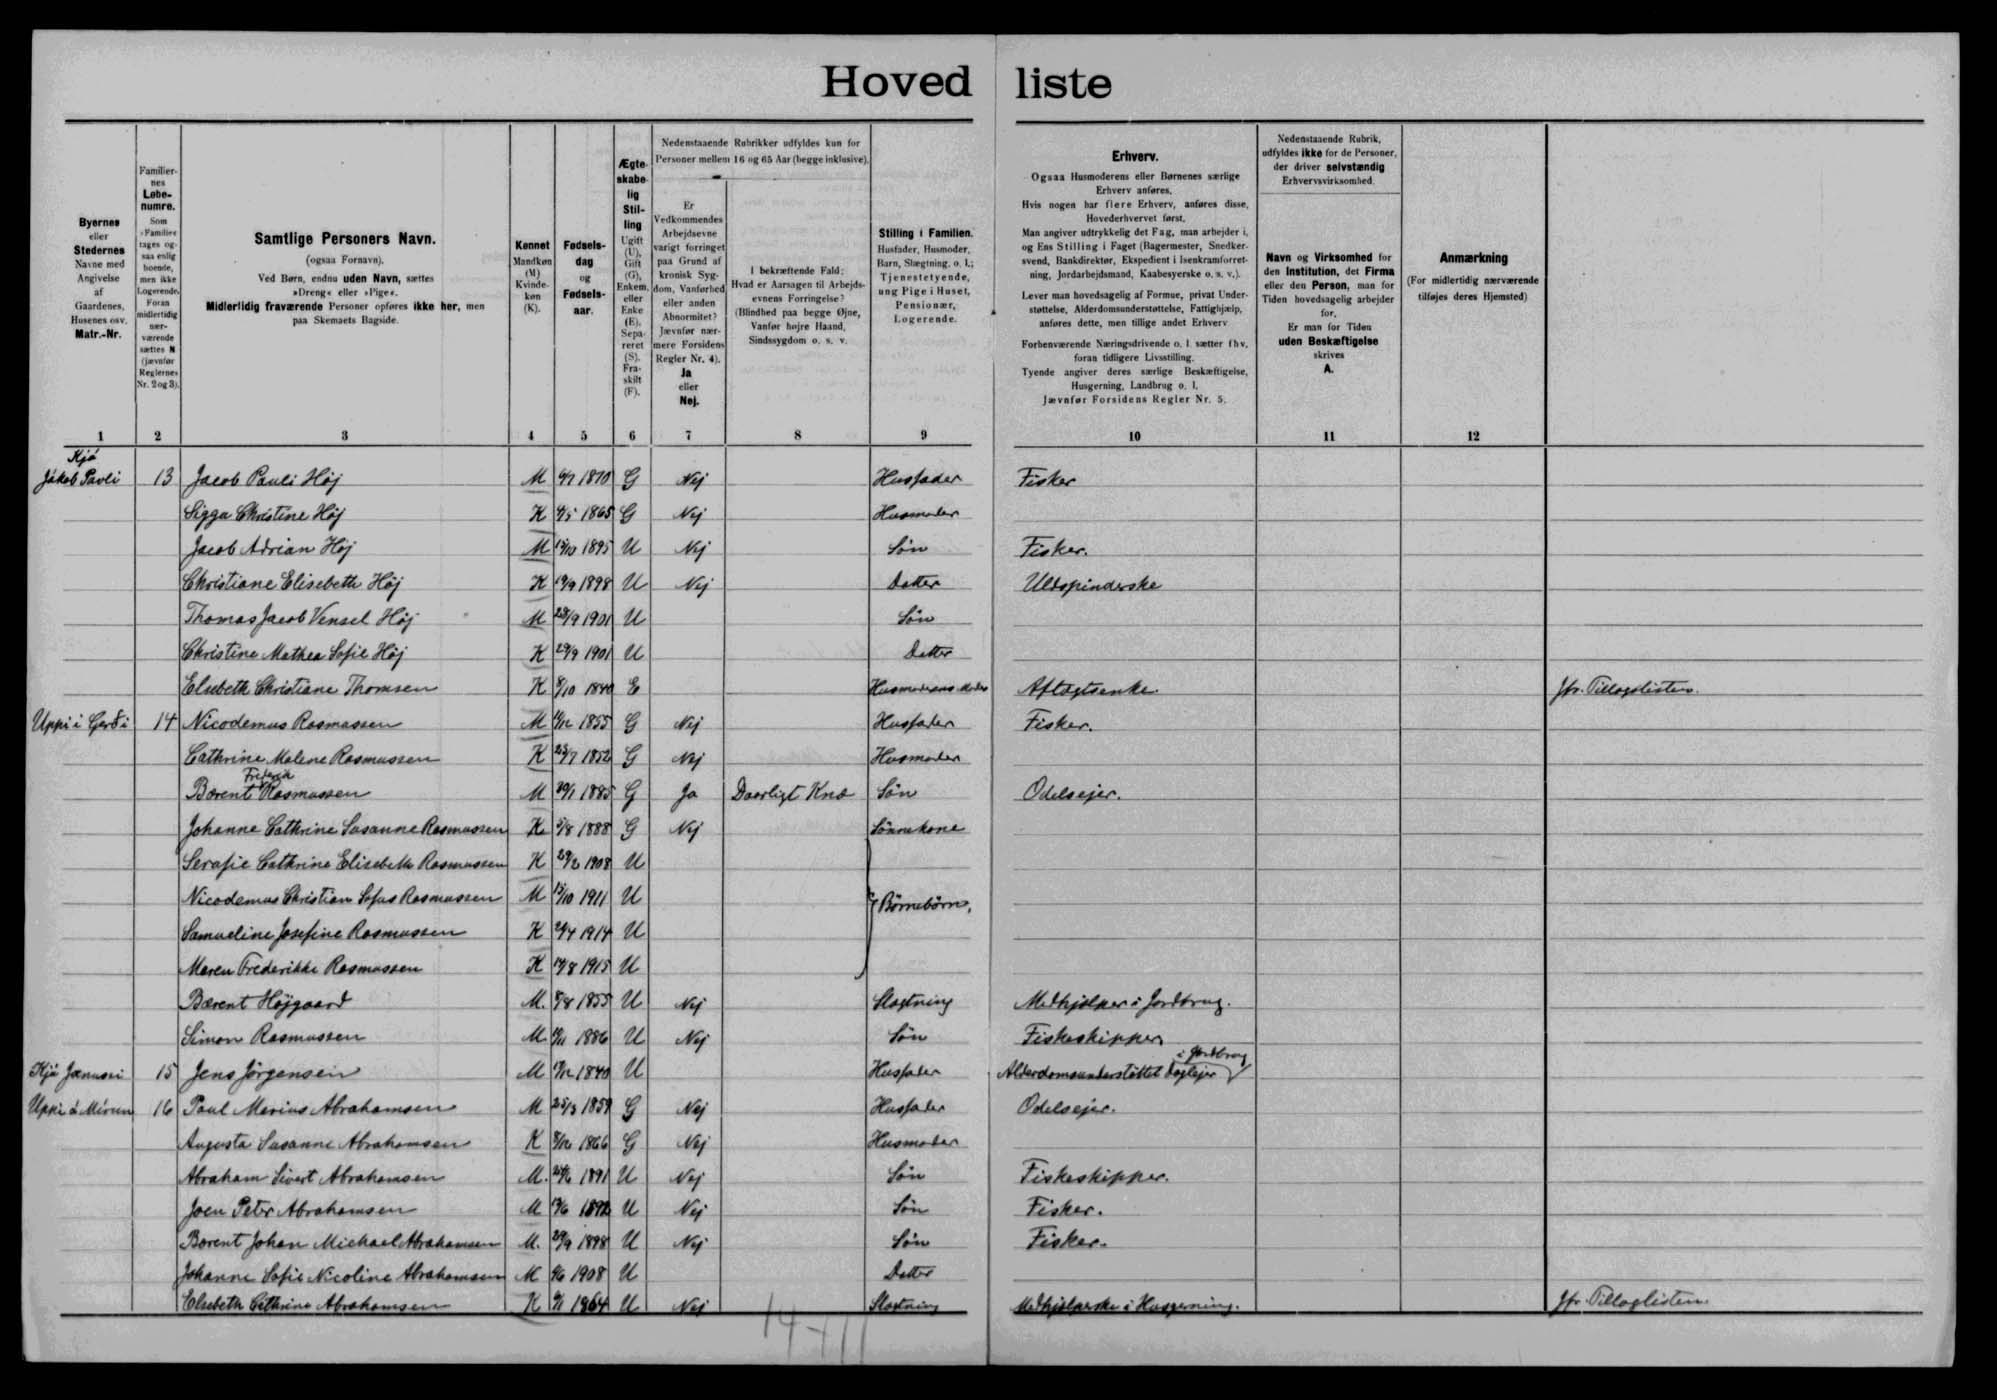 Hoved liste
Byernes
eller
Stedernes
Navne med
Angivelse
af
Gaardenes,
Husenes osv.
Matr.-Nr.
Familier-
nes
Løbe-
numre.
Som
»Familie«
tages og-
saa enlig
boende,
men ikke
Logerende.
Foran
midlertidig
nær-
værende
sættes N
(jævnfør
Reglernes
Nr. 2 og 3).
Samtlige Personers Navn.
(ogsaa Fornavn).
Ved Børn, endnu uden Navn, sættes
»Dreng« eller »Pige«.
Midlertidig fraværende Personer opføres ikke her, men
paa Skemaets Bagside.
Kønnet
Mandkøn
(M)
Kvinde-
køn
(K).
Fødsels-
dag
og
Fødsels-
aar.
Ægte-
skabe-
lig
Stil-
ling
Ugift
(U),
Gift
(G),
Enkem.
eller
Enke
(E).
Sepa-
reret
(S).
Fra-
skilt
(F).
Nedenstaaende Rubrikker udfyldes kun for
Personer mellem 16 og 65 Aar (begge inklusive).
Er
Vedkommendes
Arbejdsevne
varigt forringet
paa Grund af
kronisk Syg-
dom, Vanførhed
eller anden
Abnormitet?
Jævnfør nær-
mere Forsidens
Regler Nr. 4).
Ja
eller
Nej.
I bekræftende Fald:
Hvad er Aarsagen til Arbejds-
evnens Forringelse?
(Blindhed paa begge Øjne,
Vanfør højre Haand,
Sindssygdom o. s. v.
Stilling i Familien.
Husfader, Husmoder,
Barn, Slægtning, o. l.;
Tjenestetyende,
ung Pige i Huset,
Pensionær,
Logerende.
Erhverv.
Ogsaa Husmoderens eller Børnenes særlige
Erhverv anføres.
Hvis nogen har flere Erhverv, anføres disse,
Hovederhvervet først.
Man angiver udtrykkelig det Fag, man arbejder i,
og Ens Stilling i Faget (Bagermester, Snedker-
svend, Bankdirektør, Ekspedient i Isenkramforret-
ning, Jordarbejdsmand, Kaabesyerske o. s. v.).
Lever man hovedsagelig af Formue, privat Under-
støttelse, Alderdomsunderstøttelse, Fattighjælp,
anføres dette, men tillige andet Erhverv
Forhenværende Næringsdrivende o. l. sætter fhv.
foran tidligere Livsstilling.
Tyende angiver deres særlige Beskæftigelse,
Husgerning, Landbrug o. l.
Jævnfør Forsidens Regler Nr. 5.
Nedenstaaende Rubrik,
udfyldes ikke for de Personer,
der driver selvstændig
Erhvervsvirksomhed.
Navn og Virksomhed for
den Institution, det Firma
eller den Person, man for
Tiden hovedsagelig arbejder
for.
Er man for Tiden
uden Beskæftigelse
skrives
A.
Anmærkning
(For midlertidig nærværende
tilføjes deres Hjemsted)
1 2 3 4 5 6 7 8 9 10 11 12
Kjá
Jákob Pavli 13 Jacob Pauli Høj M 6/7 1870 G Nej Husfader Fisker
Sigga Christine Høj K 4/5 1865 G Nej Husmoder
Jacob Adrian Høj M 15/10 1895 U Nej Søn Fisker.
Christiane Elisebeth Høj K 19/9 1898 U Nej Datter Uldspinderske
Thomas Jacob Vensel Høj M 28/9 1901 U Søn
Christine Mathea Sofie Høj K 29/9 1901 U Datter
Elsebeth Christiane Thomsen K 8/10 1840 E Husmoderens Moder Aftægtsenke. Jfr. Tillægslisten.
Uppi i Gerði 14 Nicodemus Rasmussen M 1855 G Nej Husfader Fisker.
Cathrine Malene Rasmussen K 23/7 1852 G Nej Husmoder
Frederik
Bærent Rasmussen M 30/1 1885 G Ja Daarligt Knæ Søn Odelsejer.
Johanne Cathrine Susanne Rasmussen K. 5/8 1888 G Nej Sønnekone
Serafie Cathrine Elisebeth Rasmussen K 29/2 1908 U
Nicodemus Christian Sofus Rasmussen M 15/10 1911 U Børnebørn.
Samueline Josefine Rasmussen K 2/4 1914 U
Maren Frederikke Rasmussen K 14/8 1915 U
Bærent Højgaard M. 8/8 1855 U Nej Slægtning Medhjælper i Jordbrug.
Simon Rasmussen M. 1886 U Nej Søn Fiskeskipper
i Jordbrug
Kjá Jænussi 15 Jens Jørgensen M 1840 U Husfader Alderdomsunderstøttet Daglejer
Uppi á Múrun 16 Poul Marius Abrahamsen M 25/3 1859 G Nej Husfader Odelsejer.
Augusta Susanne Abrahamsen K 8/12 1866 G Nej Husmoder
Abraham Sivert Abrahamsen M. 1891 U Nej Søn Fiskeskipper.
Joen Peter Abrahamsen M 1892 U Nej Søn Fisker.
Bærent Johan Michael Abrahamsen M. 29/9 1898 U Nej Søn Fisker.
Johanne Sofie Nicoline Abrahamsen M 1908 U Datter
Elsebeth Cathrine Abrahamsen K 1864 U Nej Slægtning Medhjælperske i Husgerning. Jfr. Tillægslisten.